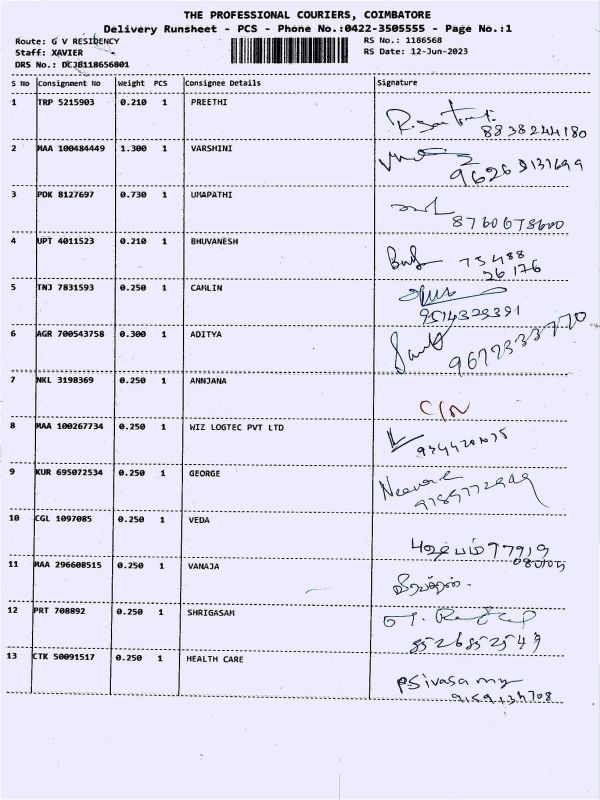 THE PROFESSIONAL COURIERS, COIMBATORE
Delivery Runsheet - PCS - Phone No.:0422-3505555 - Page No.:1
Route: G V RESIDENCY
Staff: XAVIER
DRS No.: DCJB118656801
RS No.: 1186568
RS Date: 12-Jun-2023
S No Consignment No Weight PCS Consignee Details Signature
1 TRP 5215903 0.210 1 PREETHI
8838244180
2 MAA 100484449 1.300 1 VARSHINI
3 PDK 8127697 0.730 1 UMAPATHI
8760678600
4 UPT 4011523 0.210 1 BHUVANESH
75488
26176
5 TNJ 7831593 0.250 1 CAMLIN
9514329391
6 AGR 700543758 0.300 1 ADITYA
9672333770
7 NKL 3198369 0.250 1 ANNJANA
8 MAA 100267734 0.250 1 WIZ LOGTEC PVT LTD
9 KUR 695072534 0.250 1 GEORGE
10 CGL 1097085 0.250 1 VEDA
97919
11 MAA 296608515 0.250 1 VANAJA
12 PRT 708892 0.250 1 SHRIGASAM
8526852549
13 CTK 50091517 0.250 1 HEALTH CARE
PSivasamy
9159134708